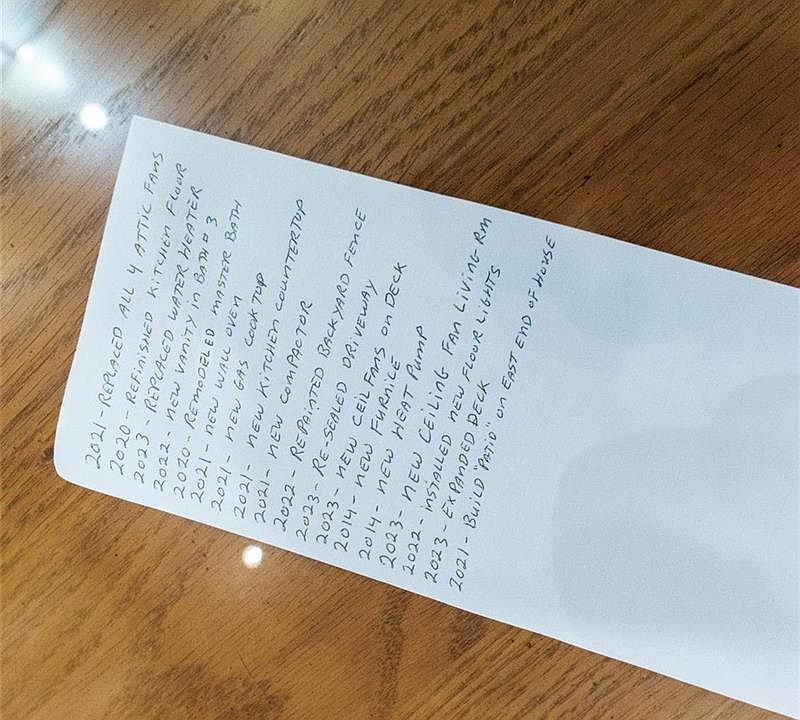 2021 - REPLACED ALL 4 ATTIC FANS
2020 - REFINISHED KITCHEN FLOOR
2023 - REPLACED WATER HEATER
2022 - NEW VANITY IN BATH # 3
2020 - REMODELED MASTER BATH
2021 - NEW WALL OVEN
2021 - NEW GAS COOK TOP
2021 - NEW KITCHEN COUNTERTOP
2021 - NEW COMPACTOR
2022 - REPAINTED BACKYARD FENCE
2023 - RE-SEALED DRIVEWAY
2023 - NEW CEIL FANS ON DECK
2014 - NEW FURNICE
2014 - NEW HEAT PUMP
2023 - NEW CEILING FAN LIVING RM
2022 - INSTALLED NEW FLOOR LIGHTS
2023 - EXPANDED DECK
2021 - BUILD "PATIO" ON EAST END OF HOUSE